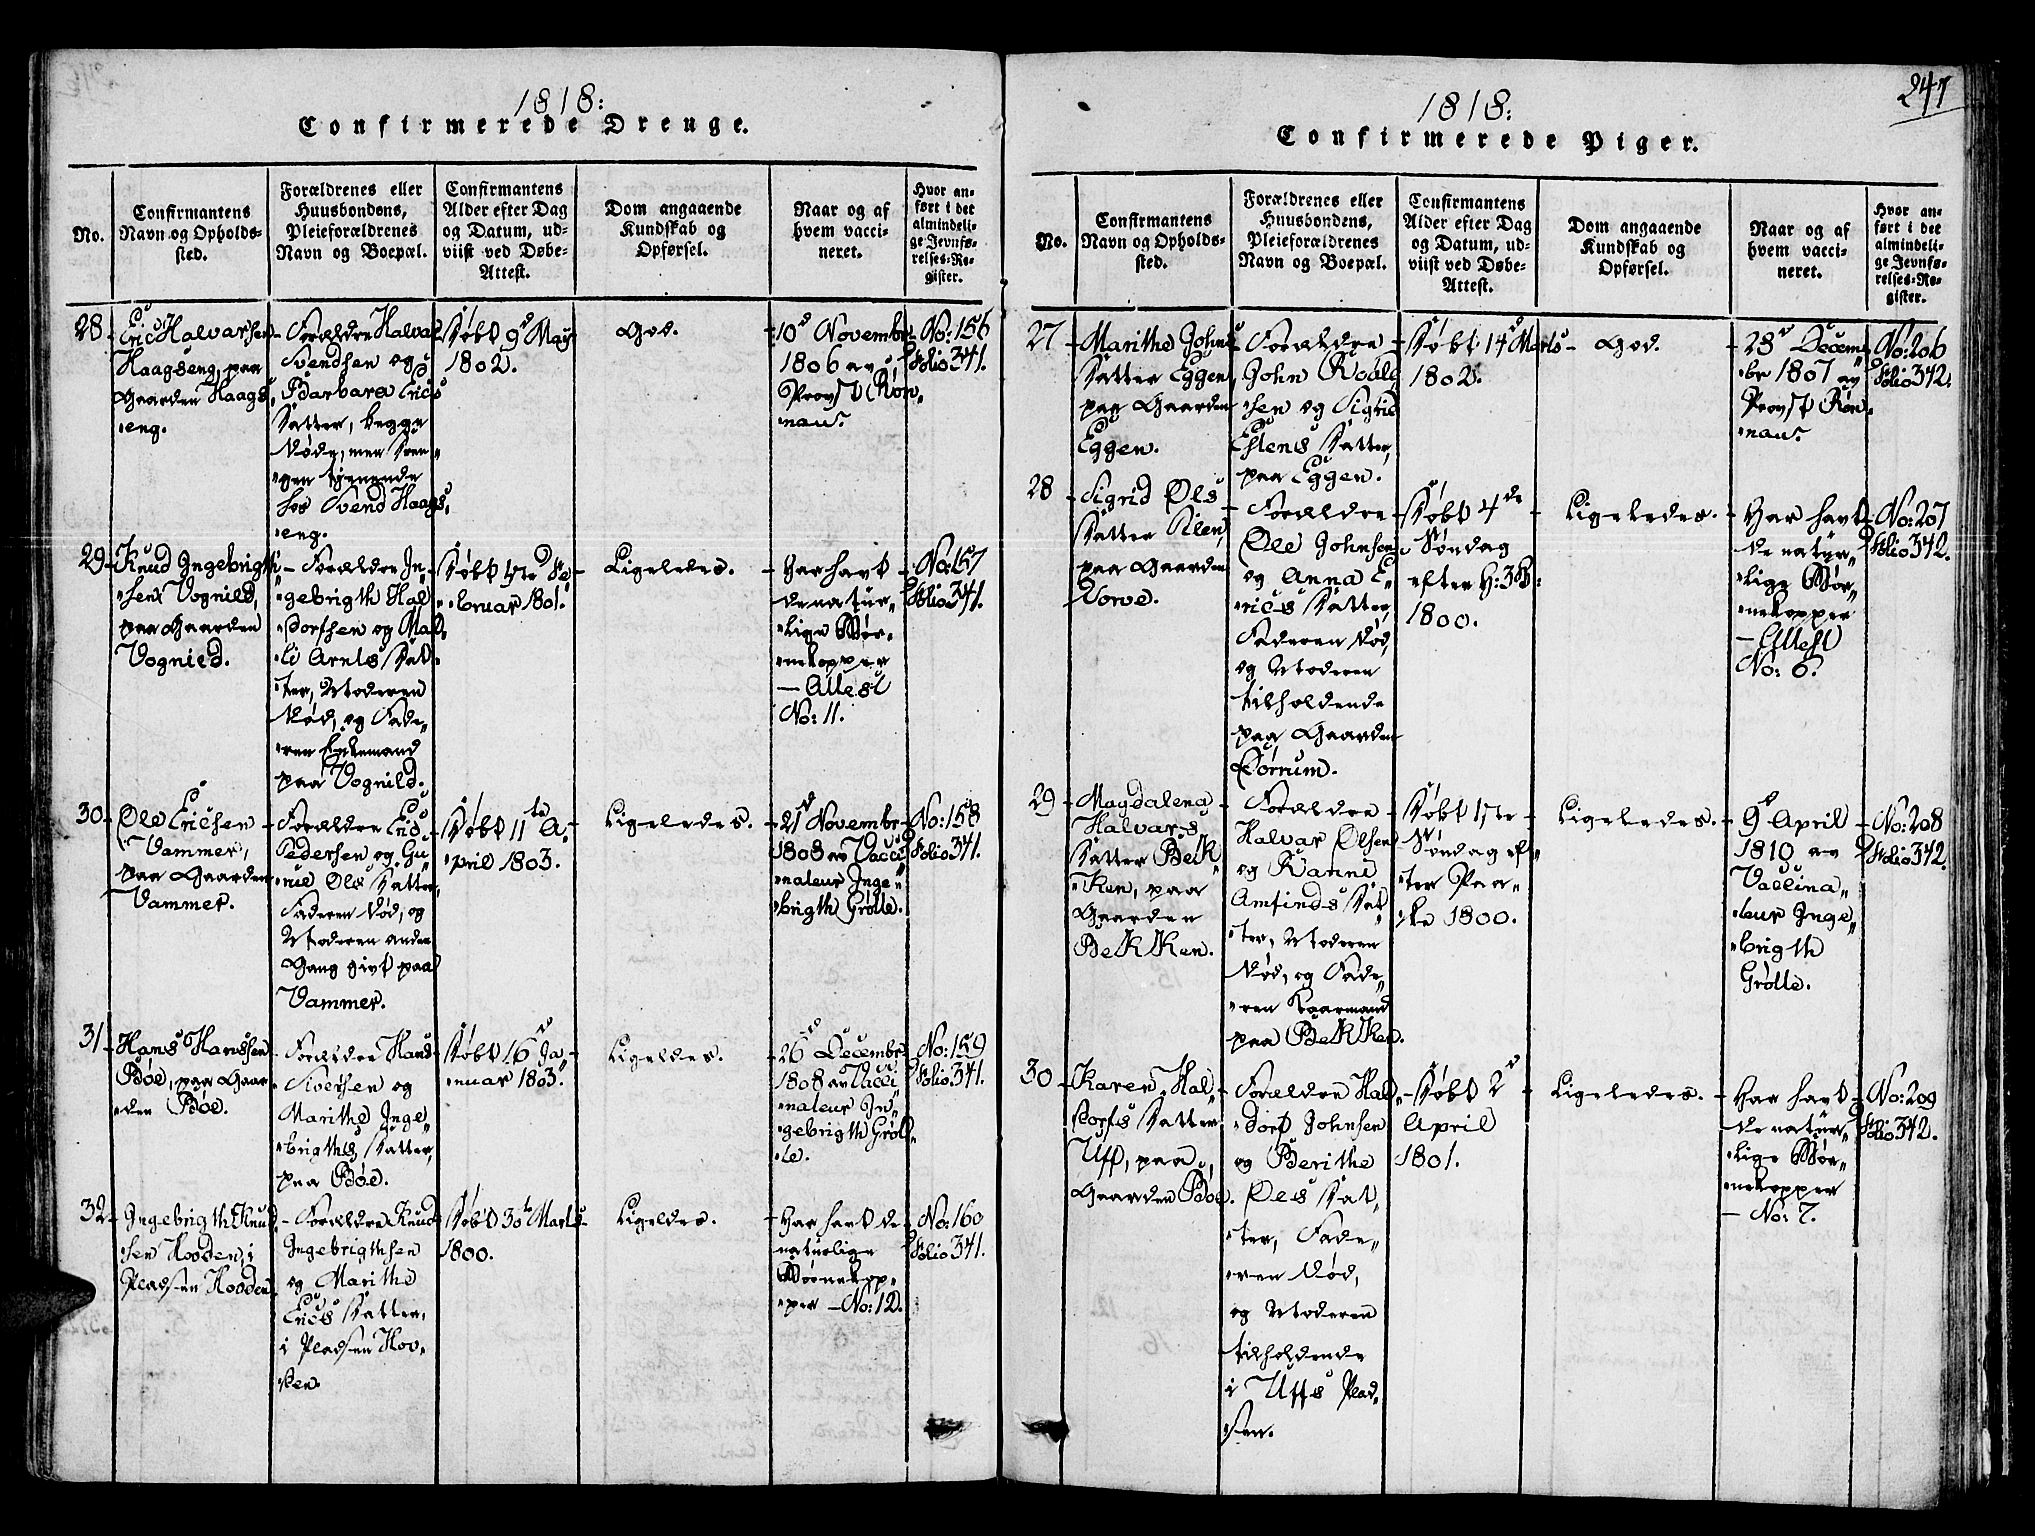 1818:
Confirmerede Drenge.
No.
Confirmantens
Navn og Opholds-
sted.
Forældrenes eller
Huusbondens,
Pleieforældrenes
Navn og Boepæl.
Confirmantens
Alder efter Dag
og Datum, ud-
viist ved Døbe-
Attest.
Dom angaaende
Kundskab og
Opførsel.
Naar og af
hvem vacci-
neret.
Hvor an-
ført i det
almindeli-
ge Jevnfø-
relses-Re-
gister.
28
Eric Halvorsen
Haagseng, paa
Gaarden Haags
eng.
Forældre Halvor
Svendsen og
Barbara Erics
Datter, begge
døde, men Dren
gen tjenende
hos Svend Haags
eng.
Døbt 9d May
1802.
God.
10d Novembr
1806 av
Provst Røn
nau.
No: 156
Folio 341.
29
Knud Ingebrigth
sen Vognild,
paa Gaarden
Vognild.
Forældre In
gebrigth Hal
dorsen og Mal
li Arnts Dat
ter, Moderen
død, og Fade
ren Enkemand
paa Vognild.
Døbt 17de Fe
bruar 1801.
Ligeledes.
Har havt
de natur
lige Bør
nekopper
— Attest
No: 11.
No: 157
Folio 341.
30
Ole Ericsen
Vammer,
paa Gaarden
Vammer.
Forældre Eric
Pedersen og Gu
rue Ols Datter,
Faderen død, og
Moderen anden
Gang givt paa
Vammer.
Døbt 11te A
pril 1803.
Ligeledes.
21d Novembr
1808 av Vacci
nateur Inge
brigth Grølle.
No: 158
Folio 341.
31
Hans Hanssen
Bøe, paa Gaar
den Bøe.
Forældre Hans
Siversen og
Marithe Inge
brigths Datter,
paa Bøe.
Døbt 16d Ja
nuar 1803.
Ligeledes.
26d Decembr
1808 av Vacci
nateur In
gebrigth Grøl
le.
No: 159
Folio 341.
32
Ingebrigth Knud
sen Hovden, i
Pladsen Hovden
Forældre Knud
Ingebrigthsen
og Marithe
Erics Datter,
i Pladsen Hov
den.
Døbt 30te Marts
1800.
Ligeledes.
Har havt de
naturlige
Børnekop
per — No: 12.
No: 160
Folio 341.
241
1818:
Confirmerede Piger.
No.
Confirmantens
Navn og Opholds-
sted.
Forældrenes eller
Huusbondens,
Pleieforældrenes
Navn og Boepæl.
Confirmantens
Alder efter Dag
og Datum, ud-
viist ved Døbe-
Attest.
Dom angaaende
Kundskab og
Opførsel.
Naar og af
hvem vacci-
neret.
Hvor an-
ført i det
almindeli-
ge Jevnfø-
relses-Re-
gister.
27
Marithe Johns
Datter Eggen
paa Gaarden
Eggen.
Forældre
John Roals
sen og Sigrid
Estens Datter,
paa Eggen.
Døbt 14d Marts
1802.
God.
28d Decem
br 1807 av
Provst Røn
nau.
No: 206
Folio 342.
28
Sigrid Ols
Datter
paa Gaarden
Vorve.
Forældre
Ole Johnsen
og Anna E
rics Datter,
Faderen død,
og Moderen
tilholdende
paa Gaarden
Dørrum.
Døbt 4de
Søndag
efter H: 3K:
1800.
Ligeledes.
Har havt
de natur
lige Bør
nekopper
— Attest
No: 6.
No: 207
Folio 342.
29
Magdalena
Halvors
Datter Bek
ken, paa
Gaarden
Bekken.
Forældre
Halvor Olsen
og Ranni
Amfinds Dat
ter, Moderen
død, og Fade
ren Kaarmand
paa Bekken.
Døbt 17de
Søndag ef
ter Paa
ske 1800.
Ligeledes.
9d April
1810 av
Vaccina
teur Inge
brigth
Grølle.
No: 208
Folio 342.
30
Karen Hal
dorfs Datter
Uff, paa
Gaarden Bøe.
Forældre Hal
dorf Johnsen
og Berithe
Ols Dat
ter, Fade
ren død,
og Moderen
tilholdende
i Uffs Plad
sen.
Døbt 2d
April
1801.
Ligeledes.
Har havt
de natur
lige Bør
nekopper
— No: 7.
No: 209
Folio 342.